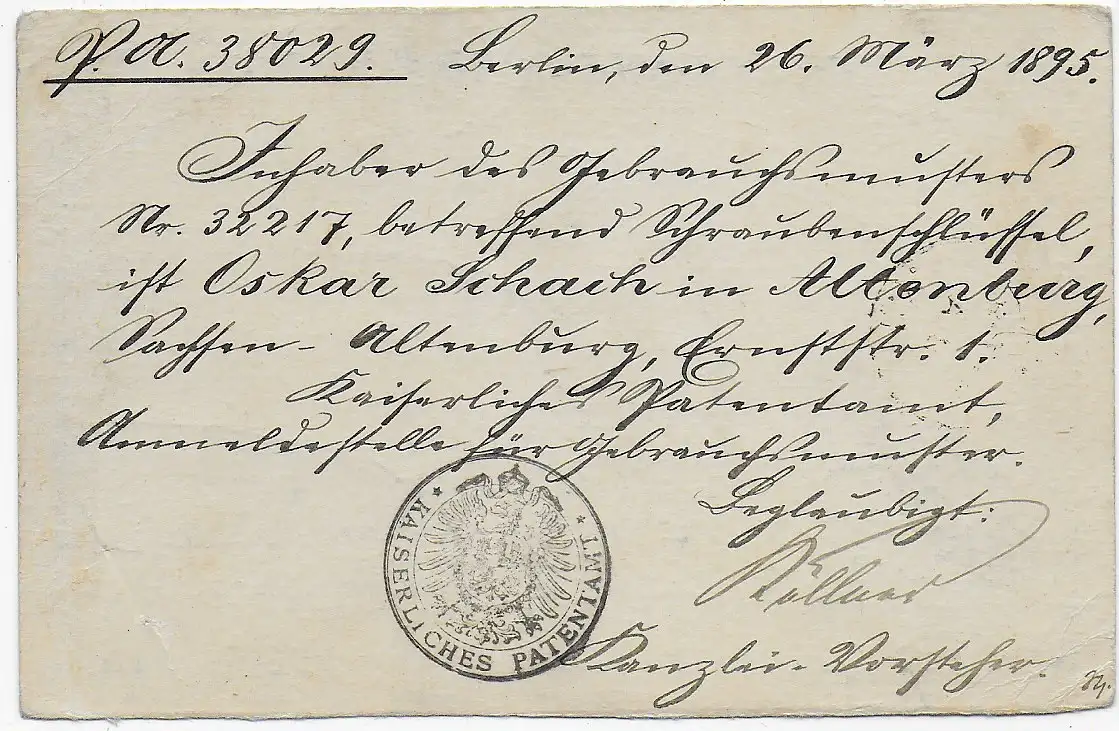 P. A. 38029. Berlin, den 26. März 1895.
Inhaber des Gebrauchsmusters
Nr. 32217, betreffend Schraubenschlüssel,
ist Oskar Schach in Altenburg,
Sachsen-Altenburg, Ernststr. 1.
Kaiserliches Patentamt,
Anmeldestelle für Gebrauchsmuster.
Beglaubigt:
Kanzlei-Vorsteher.
* KAISERLICHES PATENTAMT *